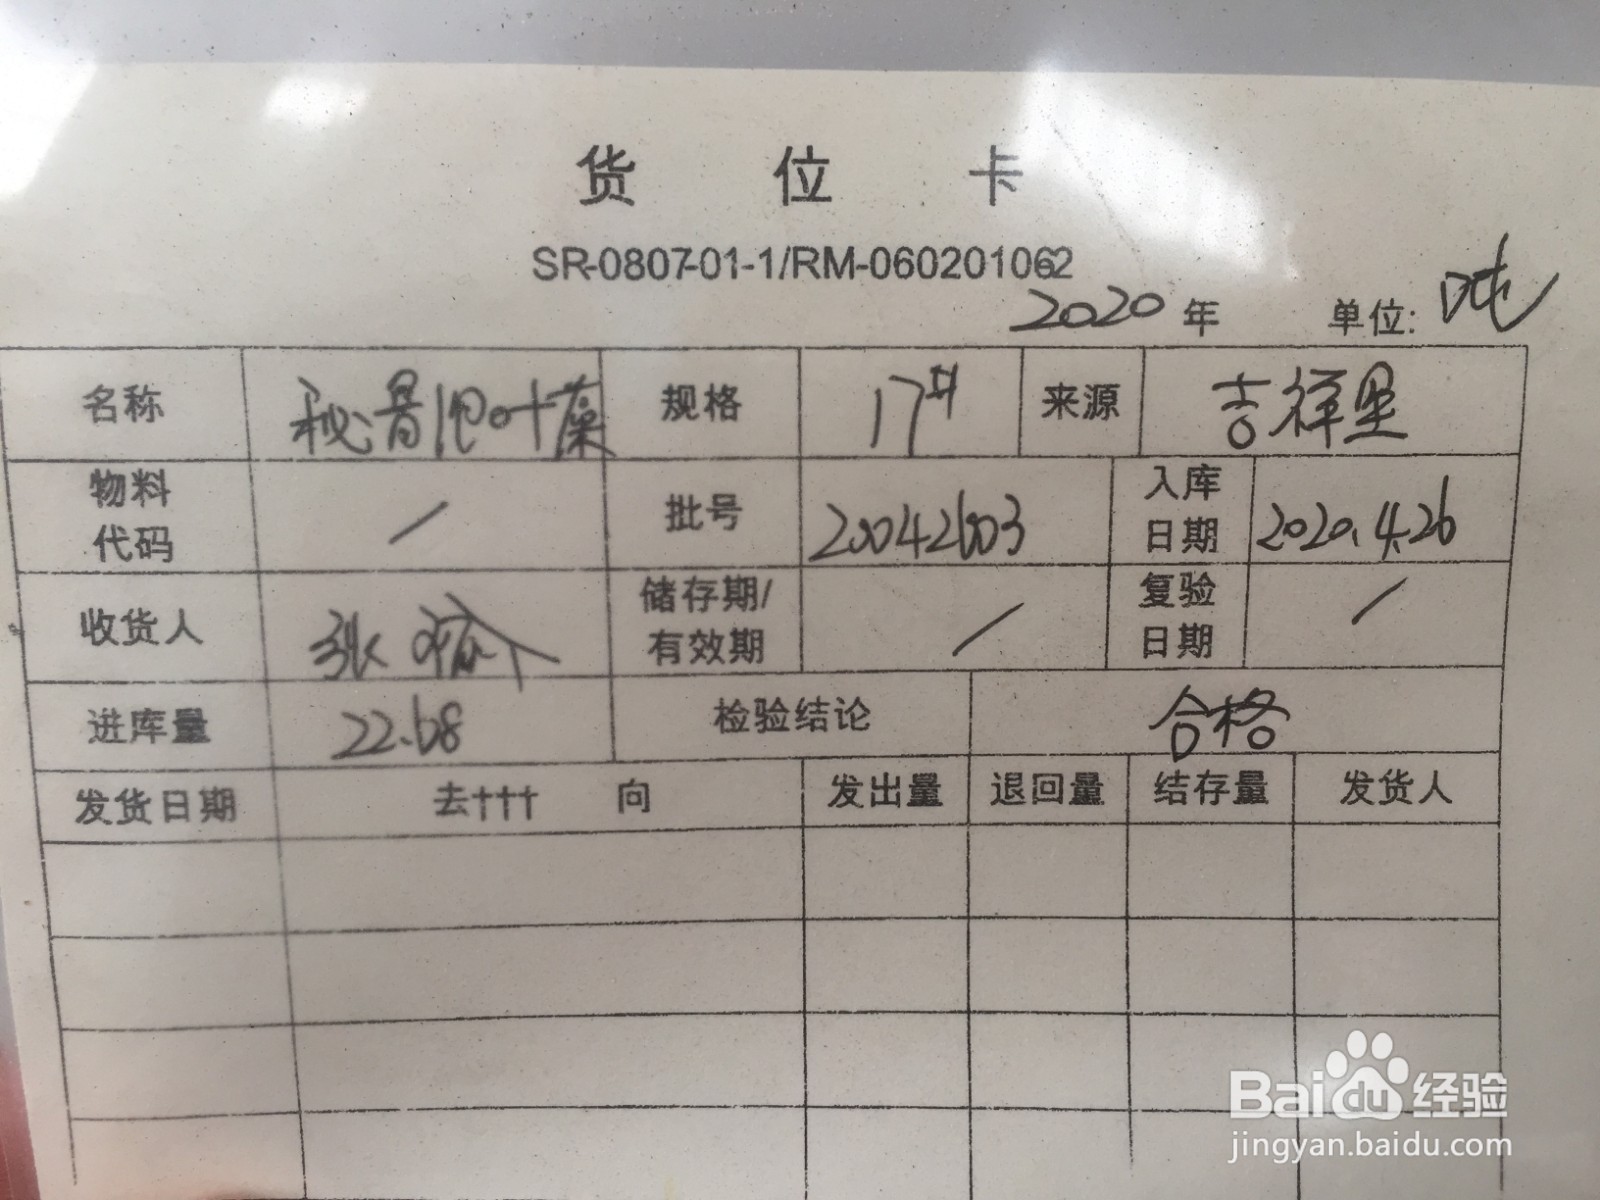 货 位 卡
SR-0807-01-1/RM-060201062
2020 年 单位: 吨
名称 秘鲁泡叶藻 规格 17# 来源 吉祥里
物料代码 / 批号 20042603 入库日期 2020.4.26
收货人 张 储存期/有效期 / 复验日期 /
进库量 22.68 检验结论 合格
发货日期 去††† 向 发出量 退回量 结存量 发货人
Baidu 经验
jingyan.baidu.com